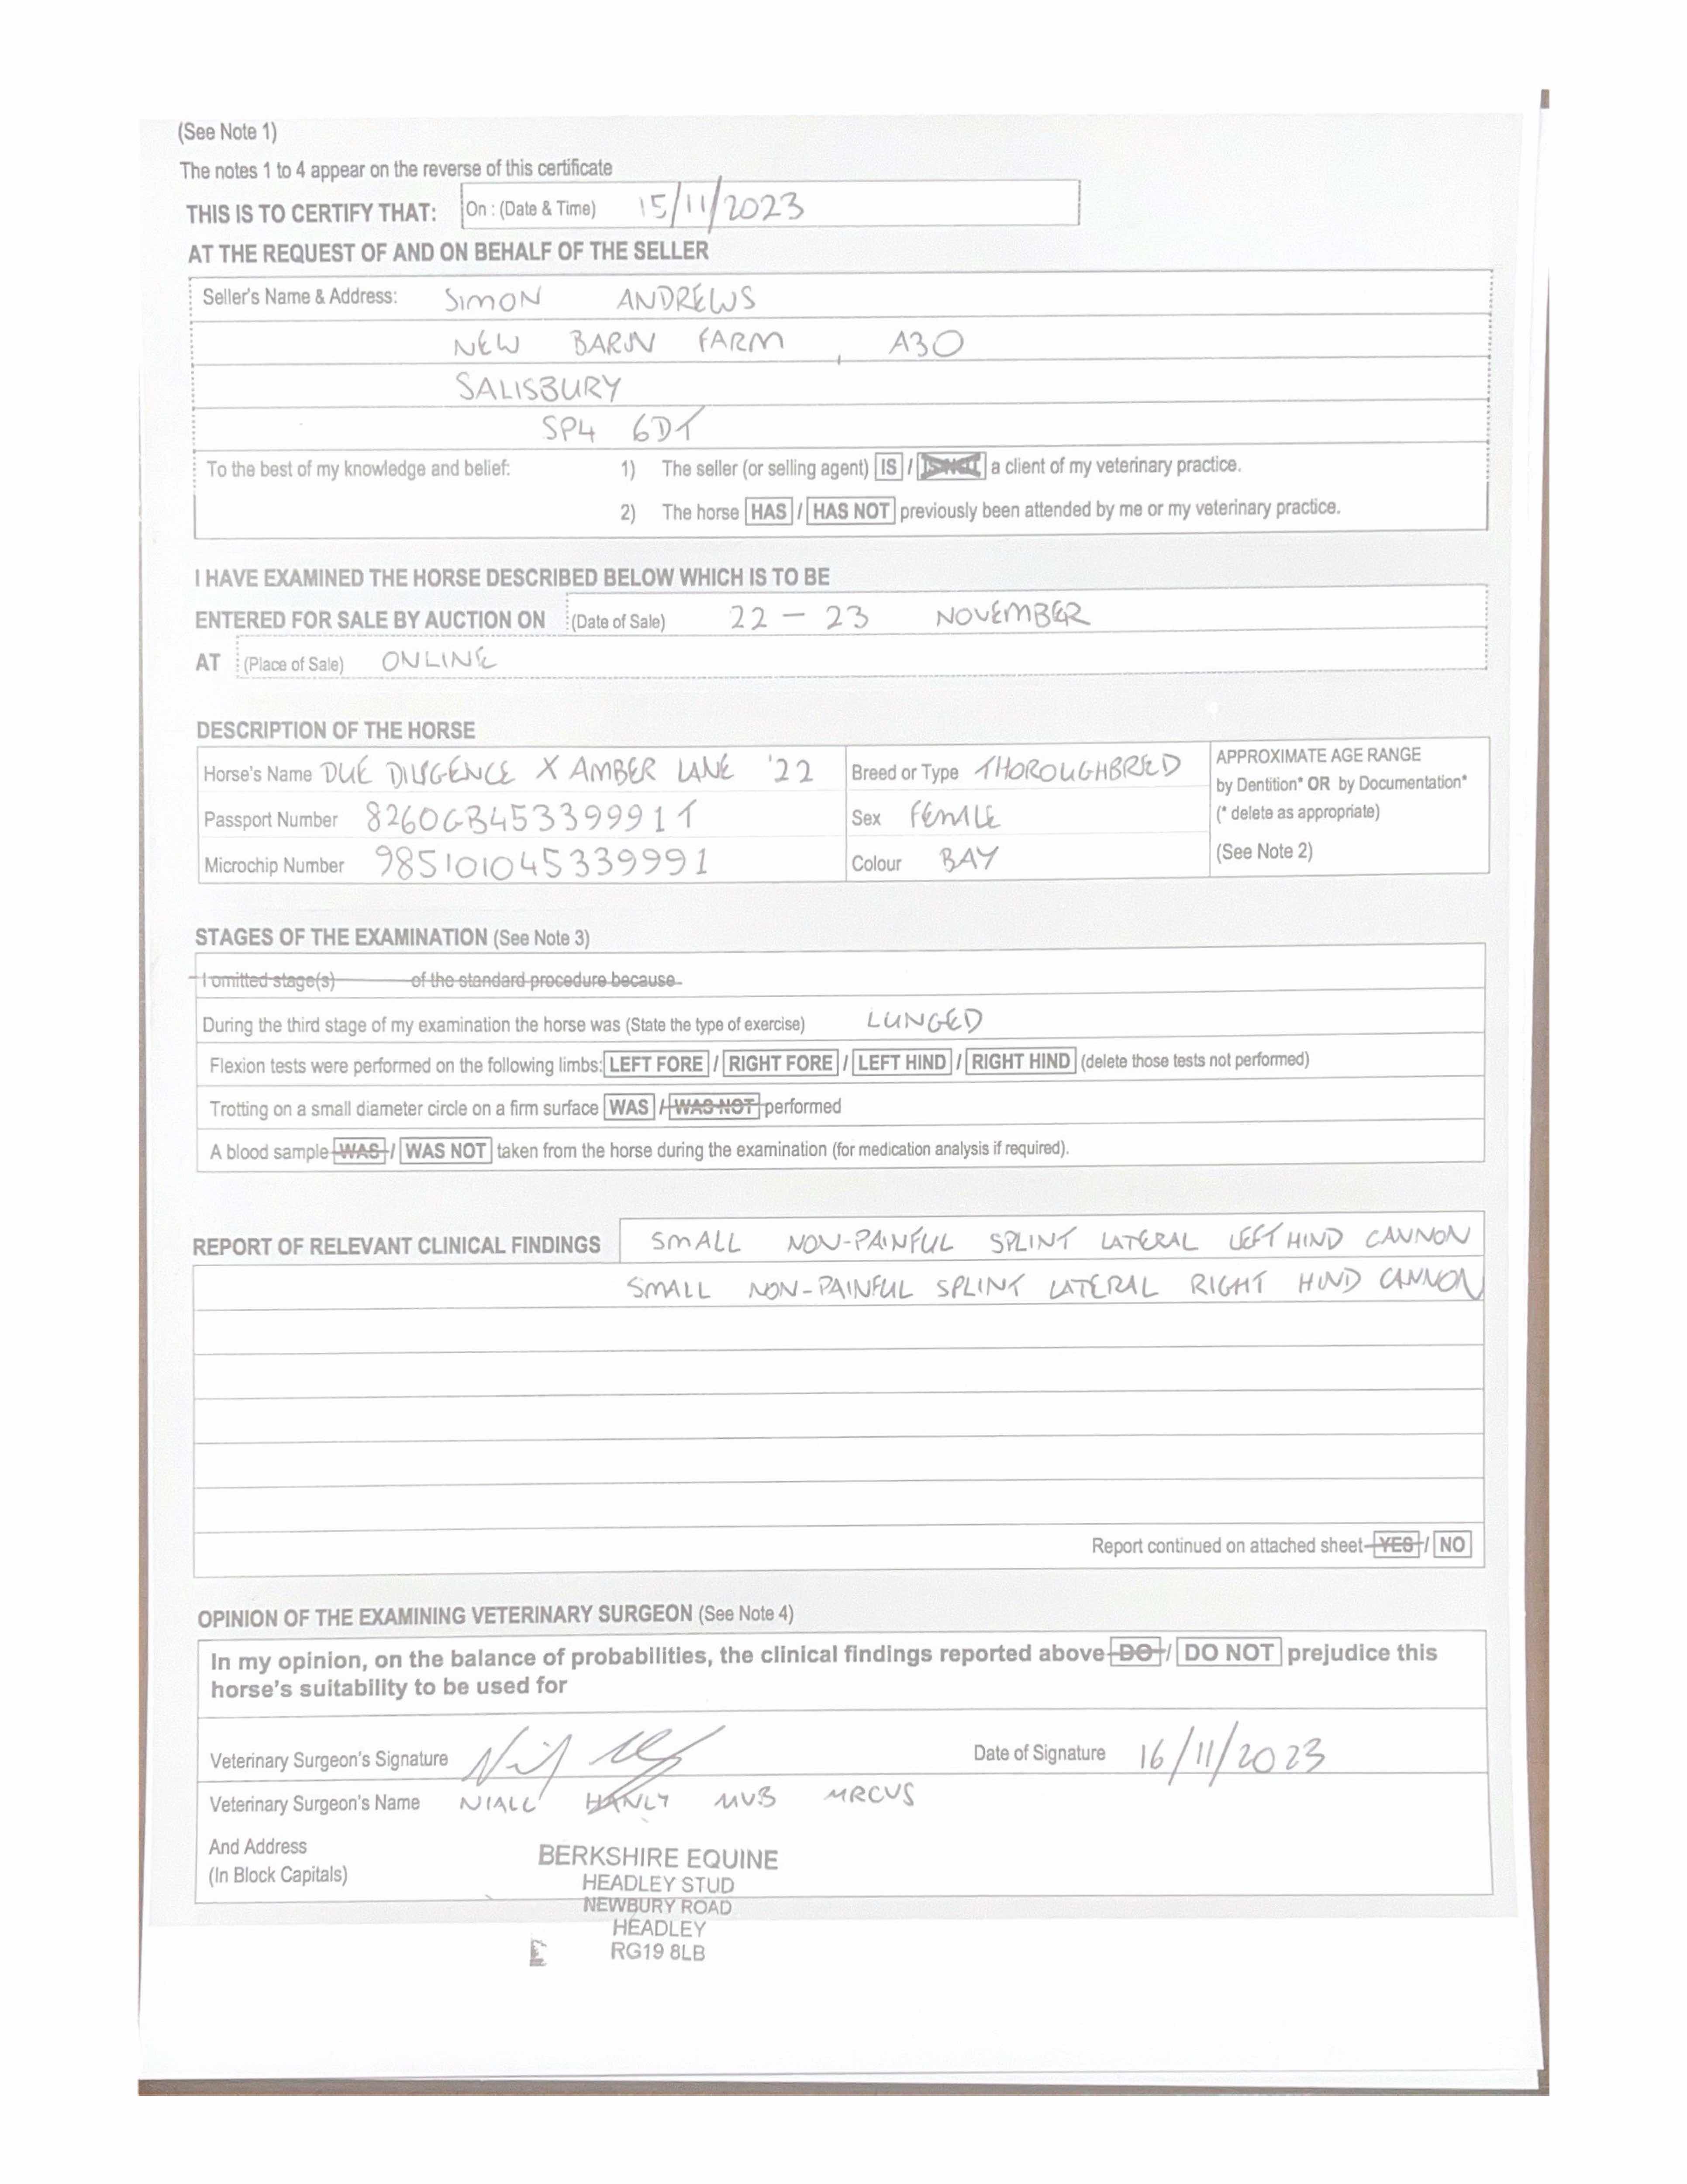 (See Note 1)
The notes 1 to 4 appear on the reverse of this certificate
THIS IS TO CERTIFY THAT: On : (Date & Time) 15/11/2023
AT THE REQUEST OF AND ON BEHALF OF THE SELLER
Seller's Name & Address: SIMON ANDREWS
NEW BARN FARM, A30
SALISBURY
SP4 6DT
To the best of my knowledge and belief: 1) The seller (or selling agent) IS / IS NOT a client of my veterinary practice.
2) The horse HAS / HAS NOT previously been attended by me or my veterinary practice.
I HAVE EXAMINED THE HORSE DESCRIBED BELOW WHICH IS TO BE
ENTERED FOR SALE BY AUCTION ON (Date of Sale) 22 - 23 NOVEMBER
AT (Place of Sale) ONLINE
DESCRIPTION OF THE HORSE
Horse's Name DUE DILIGENCE X AMBER LANE '22 Breed or Type THOROUGHBRED APPROXIMATE AGE RANGE
by Dentition* OR by Documentation*
Passport Number 8260GB45339991T Sex FEMALE (* delete as appropriate)
Microchip Number 985101045339991 Colour BAY (See Note 2)
STAGES OF THE EXAMINATION (See Note 3)
I omitted stage(s) of the standard procedure because
During the third stage of my examination the horse was (State the type of exercise) LUNGED
Flexion tests were performed on the following limbs: LEFT FORE / RIGHT FORE / LEFT HIND / RIGHT HIND (delete those tests not performed)
Trotting on a small diameter circle on a firm surface WAS / WAS NOT performed
A blood sample WAS / WAS NOT taken from the horse during the examination (for medication analysis if required).
REPORT OF RELEVANT CLINICAL FINDINGS SMALL NON-PAINFUL SPLINT LATERAL LEFT HIND CANNON
SMALL NON-PAINFUL SPLINT LATERAL RIGHT HIND CANNON
Report continued on attached sheet YES / NO
OPINION OF THE EXAMINING VETERINARY SURGEON (See Note 4)
In my opinion, on the balance of probabilities, the clinical findings reported above DO / DO NOT prejudice this
horse's suitability to be used for
Veterinary Surgeon's Signature Date of Signature 16/11/2023
Veterinary Surgeon's Name NIALL HANLY MVB MRCVS
And Address
(In Block Capitals)
BERKSHIRE EQUINE
HEADLEY STUD
NEWBURY ROAD
HEADLEY
RG19 8LB